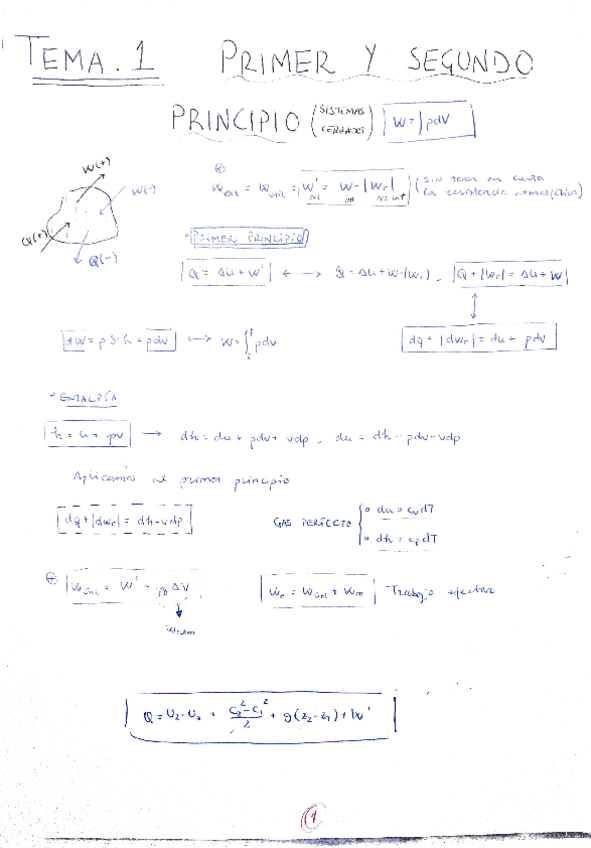 TEMA. 1 PRIMER Y SEGUNDO
PRINCIPIO (SISTEMAS CERRADOS) W = ∫pdV
W(+)
W(-)
Q(+)
Q(-)
⊛ = Wútil = W' = W - |Wr| (sin tener en cuenta la resistencia atmosférica)
· PRIMER PRINCIPIO
Q = Δu + W' ←→ Q = Δu + W - |Wr| . Q + |Wr| = Δu + W
dW = p·S·h = pdv ←→ W = ∫pdv
dq + |dwr| = du + pdv
· ENTALPÍA
h = u + pv → dh = du + pdv + vdp . du = dh - pdv - vdp
Aplicamos al primer principio
dq + |dwr| = dh - vdp
GAS PERFECTO { · du = cvdT
· dh = cpdT
⊕ Wútil = W' - p0 ΔV
We = Wútil + Wm Trabajo efectivo
Q = U2 - U1 + (c2² - c1²)/2 + g(z2 - z1) + W'
1